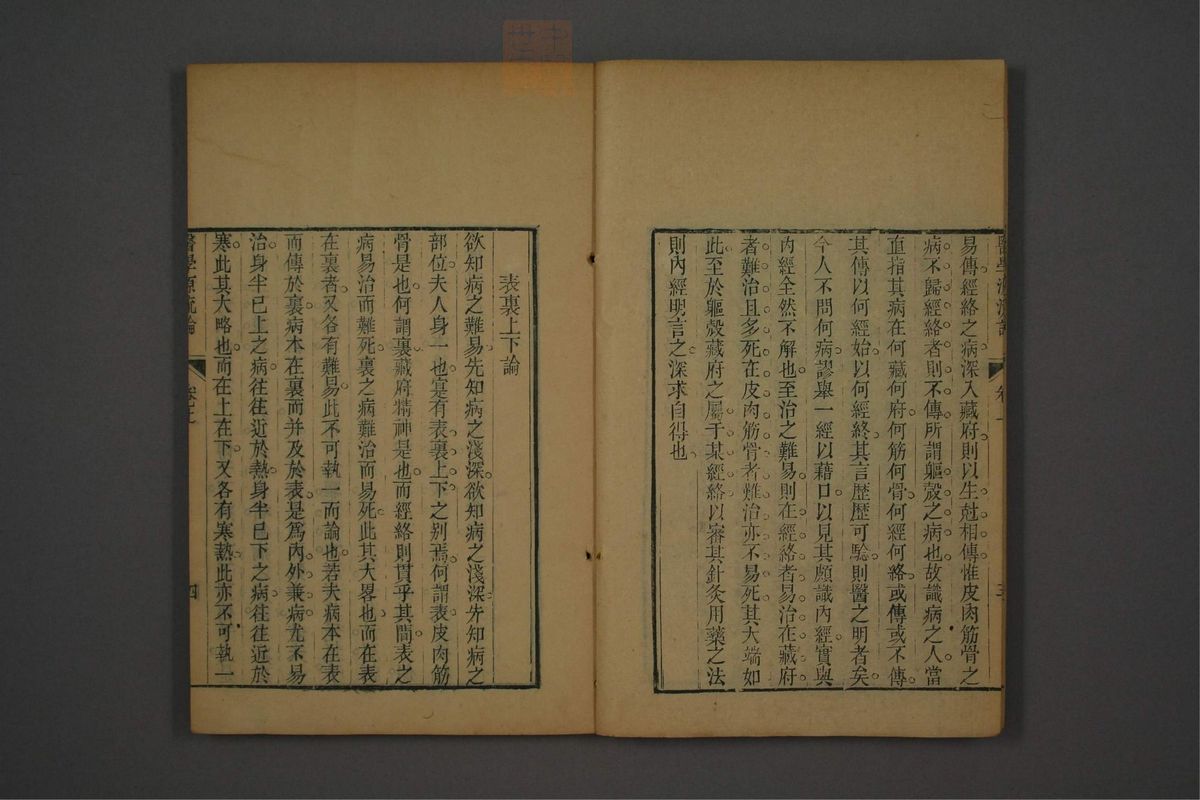 易傳經絡之病深入藏府則以生尅相傳惟皮肉筋骨之
病不歸經絡者則不傳所謂軀殼之病也故識病之人當
直指其病在何藏何府何筋何骨何經何絡或傳或不傳
其傳以何經始以何經終其言歷歷可驗則醫之明者矣
今人不問何病謬舉一經以藉口以見其頗識內經實與
內經全然不解也至治之難易則在經絡者易治在藏府
者難治且多死在皮肉筋骨者難治亦不易死其大端如
此至於軀殼藏府之屬于某經絡以審其針灸用藥之法
則內經明言之深求自得也
表裏上下論
欲知病之難易先知病之淺深欲知病之淺深先知病之
部位夫人身一也寔有表裏上下之别焉何謂表皮肉筋
骨是也何謂裏藏府精神是也而經絡則貫乎其間表之
病易治而難死裏之病難治而易死此其大畧也而在表
在裏者又各有難易此不可執一而論也若夫病本在表
而傳於裏病本在裏而并及於表是爲內外兼病尤不易
治身半已上之病往往近於熱身半已下之病往往近於
寒此其大略也而在上在下又各有寒熱此亦不可執一
醫學源流論 卷上 四